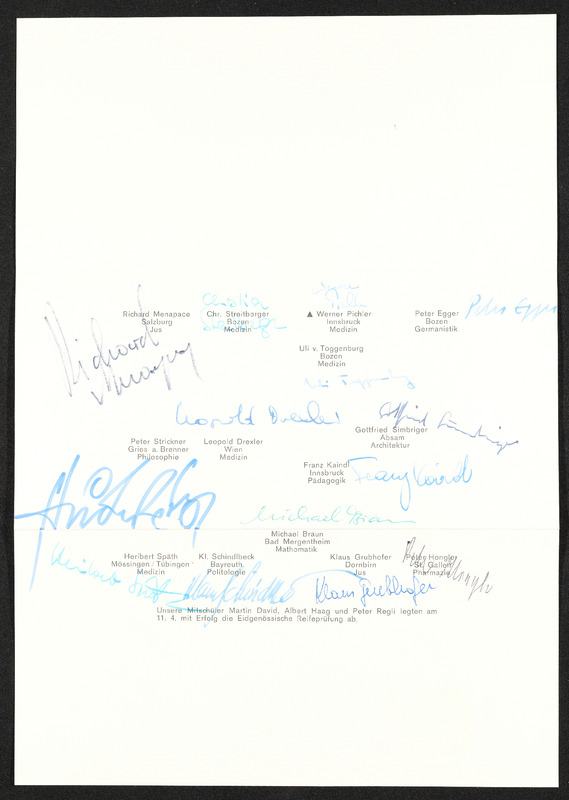 Christia
Richard Menapace
Salzburg
Jus
Chr. Streitberger
Bozen
Medizin
▲ Werner Pichler
Innsbruck
Medizin
Peter Egger
Bozen
Germanistik
Peter Egger
Richard
Menapace
Uli v. Toggenburg
Bozen
Medizin
Leopold Drexler
Gottfried Simbriger
Gottfried Simbriger
Absam
Architektur
Peter Strickner
Gries a. Brenner
Philosophie
Leopold Drexler
Wien
Medizin
Franz Kaindl
Innsbruck
Pädagogik
Franz Kaindl
Michael Braun
Michael Braun
Bad Mergentheim
Mathematik
Heribert Späth
Mössingen / Tübingen
Medizin
Kl. Schindlbeck
Bayreuth
Politologie
Klaus Grubhofer
Dornbirn
Jus
Peter Hongler
St. Gallen
Pharmazie
Heribert Späth
Klaus Grubhofer
Unsere Mitschüler Martin David, Albert Haag und Peter Regli legten am
11. 4. mit Erfolg die Eidgenössische Reifeprüfung ab.